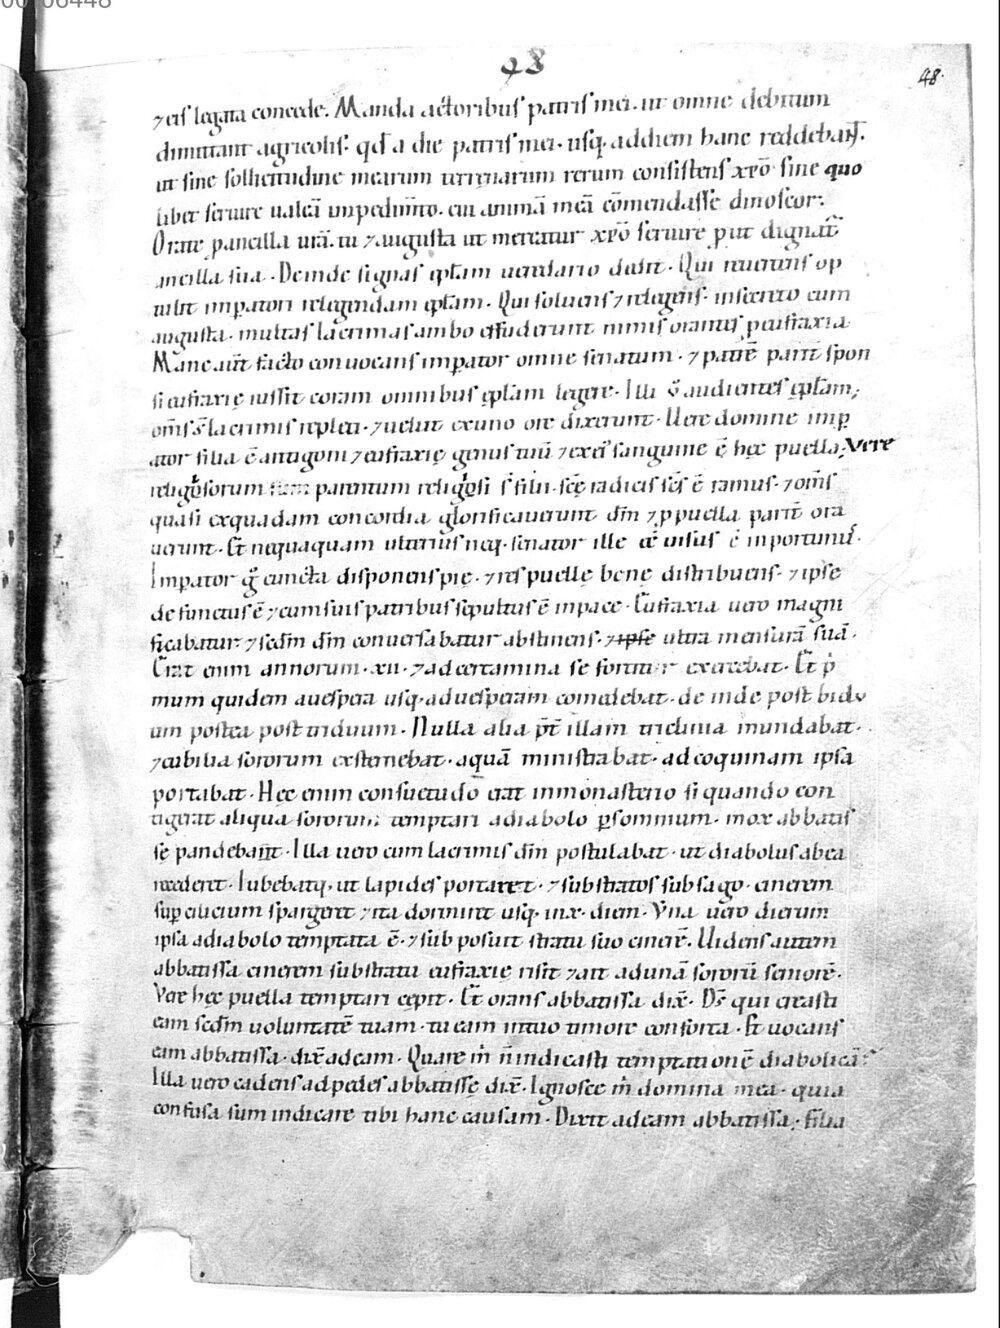 00006448
48
48.
⁊ eis legata concede. Manda actoribus patris mei. ut omne debitum
dimittant agricolis: qđ a die patris mei. usq. ad diem hanc reddebant.
ut sine sollicitudine mearum terrenarum rerum consistens xp̄o sine quo
libet seruire ualeā impedim̄to. cui animā meā cōmendasse dinoscor:
Orate p ancilla urā. tu ⁊ augusta ut mereatur xp̄o seruire put dignat̄
ancilla sua. Deinde signas ep̄lam ueredario dedit. Qui reuertens op
tulit imp̱atori relegendam ep̄lam. Qui soluens ⁊ relegens. in secreto cum
augusta. multas lacrimas ambo effuderunt nimis orantes p eufraxia.
Mane aut̄ facto conuocans imp̱ator omne senatum. ⁊ patrē parit̄ spon
si eufraxię iussit coram omnibus ep̄lam legere. Illi ū audientes ep̄lam;
om̄s s̄ lacrimis repleti. ⁊ uelut ex uno ore dixerunt. Uere domine imp̱
ator filia ē antigoni ⁊ eufraxię genus tuū ⁊ ex ei sanguine ē hęc puella; Vere
religiosorum parentum religiosi s̄ filii. scę radicis scs̄ ē ramus. ⁊ om̄s
quasi ex quadam concordia glorificauerunt dm̄ ⁊ p puella parit̄ ora
uerunt. Et nequaquam ulterius neq. senator ille ēē uisus ē inportunus.
Imperator g̊ cuncta disponens pię. ⁊ res puellę bene distribuens. ⁊ ipse
defunctus ē ⁊ cum suis patribus sepultus ē in pace. Eufraxia uero magni
ficabatur: ⁊ scdm̄ dm̄ conuersabatur abstinens. ⁊ ipse ultra mensurā suā.
Erat enim annorum. xii. ⁊ ad certamina se fortiter exercebat. Et p̱
mum quidem a uespera usq. ad uesperam comedebat. de inde post bidu
um postea post triduum. Nulla alia p̄t illam triclinia mundabat.
⁊ cubilia sororum exsternebat. aquā ministrabat. ad coquinam ipsa
portabat. Hęc enim consuetudo erat in monasterio si quando con
tigerat aliqua sororum temptari a diabolo p̱ somnium. mox abbatis
sę pandebant̄. Illa uero cum lacrimis dm̄ postulabat. ut diabolus ab ea
recederet. Iubebatq. ut lapides portaret. ⁊ substratos sub sago. cinerem
sup̱ cilicium spargeret ⁊ ita dormiret usq. in x. diem. Vna uero dierum
ipsa a diabolo temptata ē. ⁊ sub posuit stratu suo cinerē. Uidens autem
abbatissa cinerem sub stratu eufraxię risit ⁊ ait ad unā sororū seniorē.
Vere hęc puella temptari cępit. Et orans abbatissa dix̄. Ds̄ qui creasti
eam scdm̄ uoluntatē tuam. tu eam in tuo timore conforta. Et uocans
eam abbatissa. dix̄ ad eam. Quare m̄ n̄ indicasti temptationē diabolicā?
Illa uero cadens ad pedes abbatissę dix̄. Ignosce m̄ domina mea. quia
confusa sum indicare tibi hanc causam. Dixit ad eam abbatissa; filia